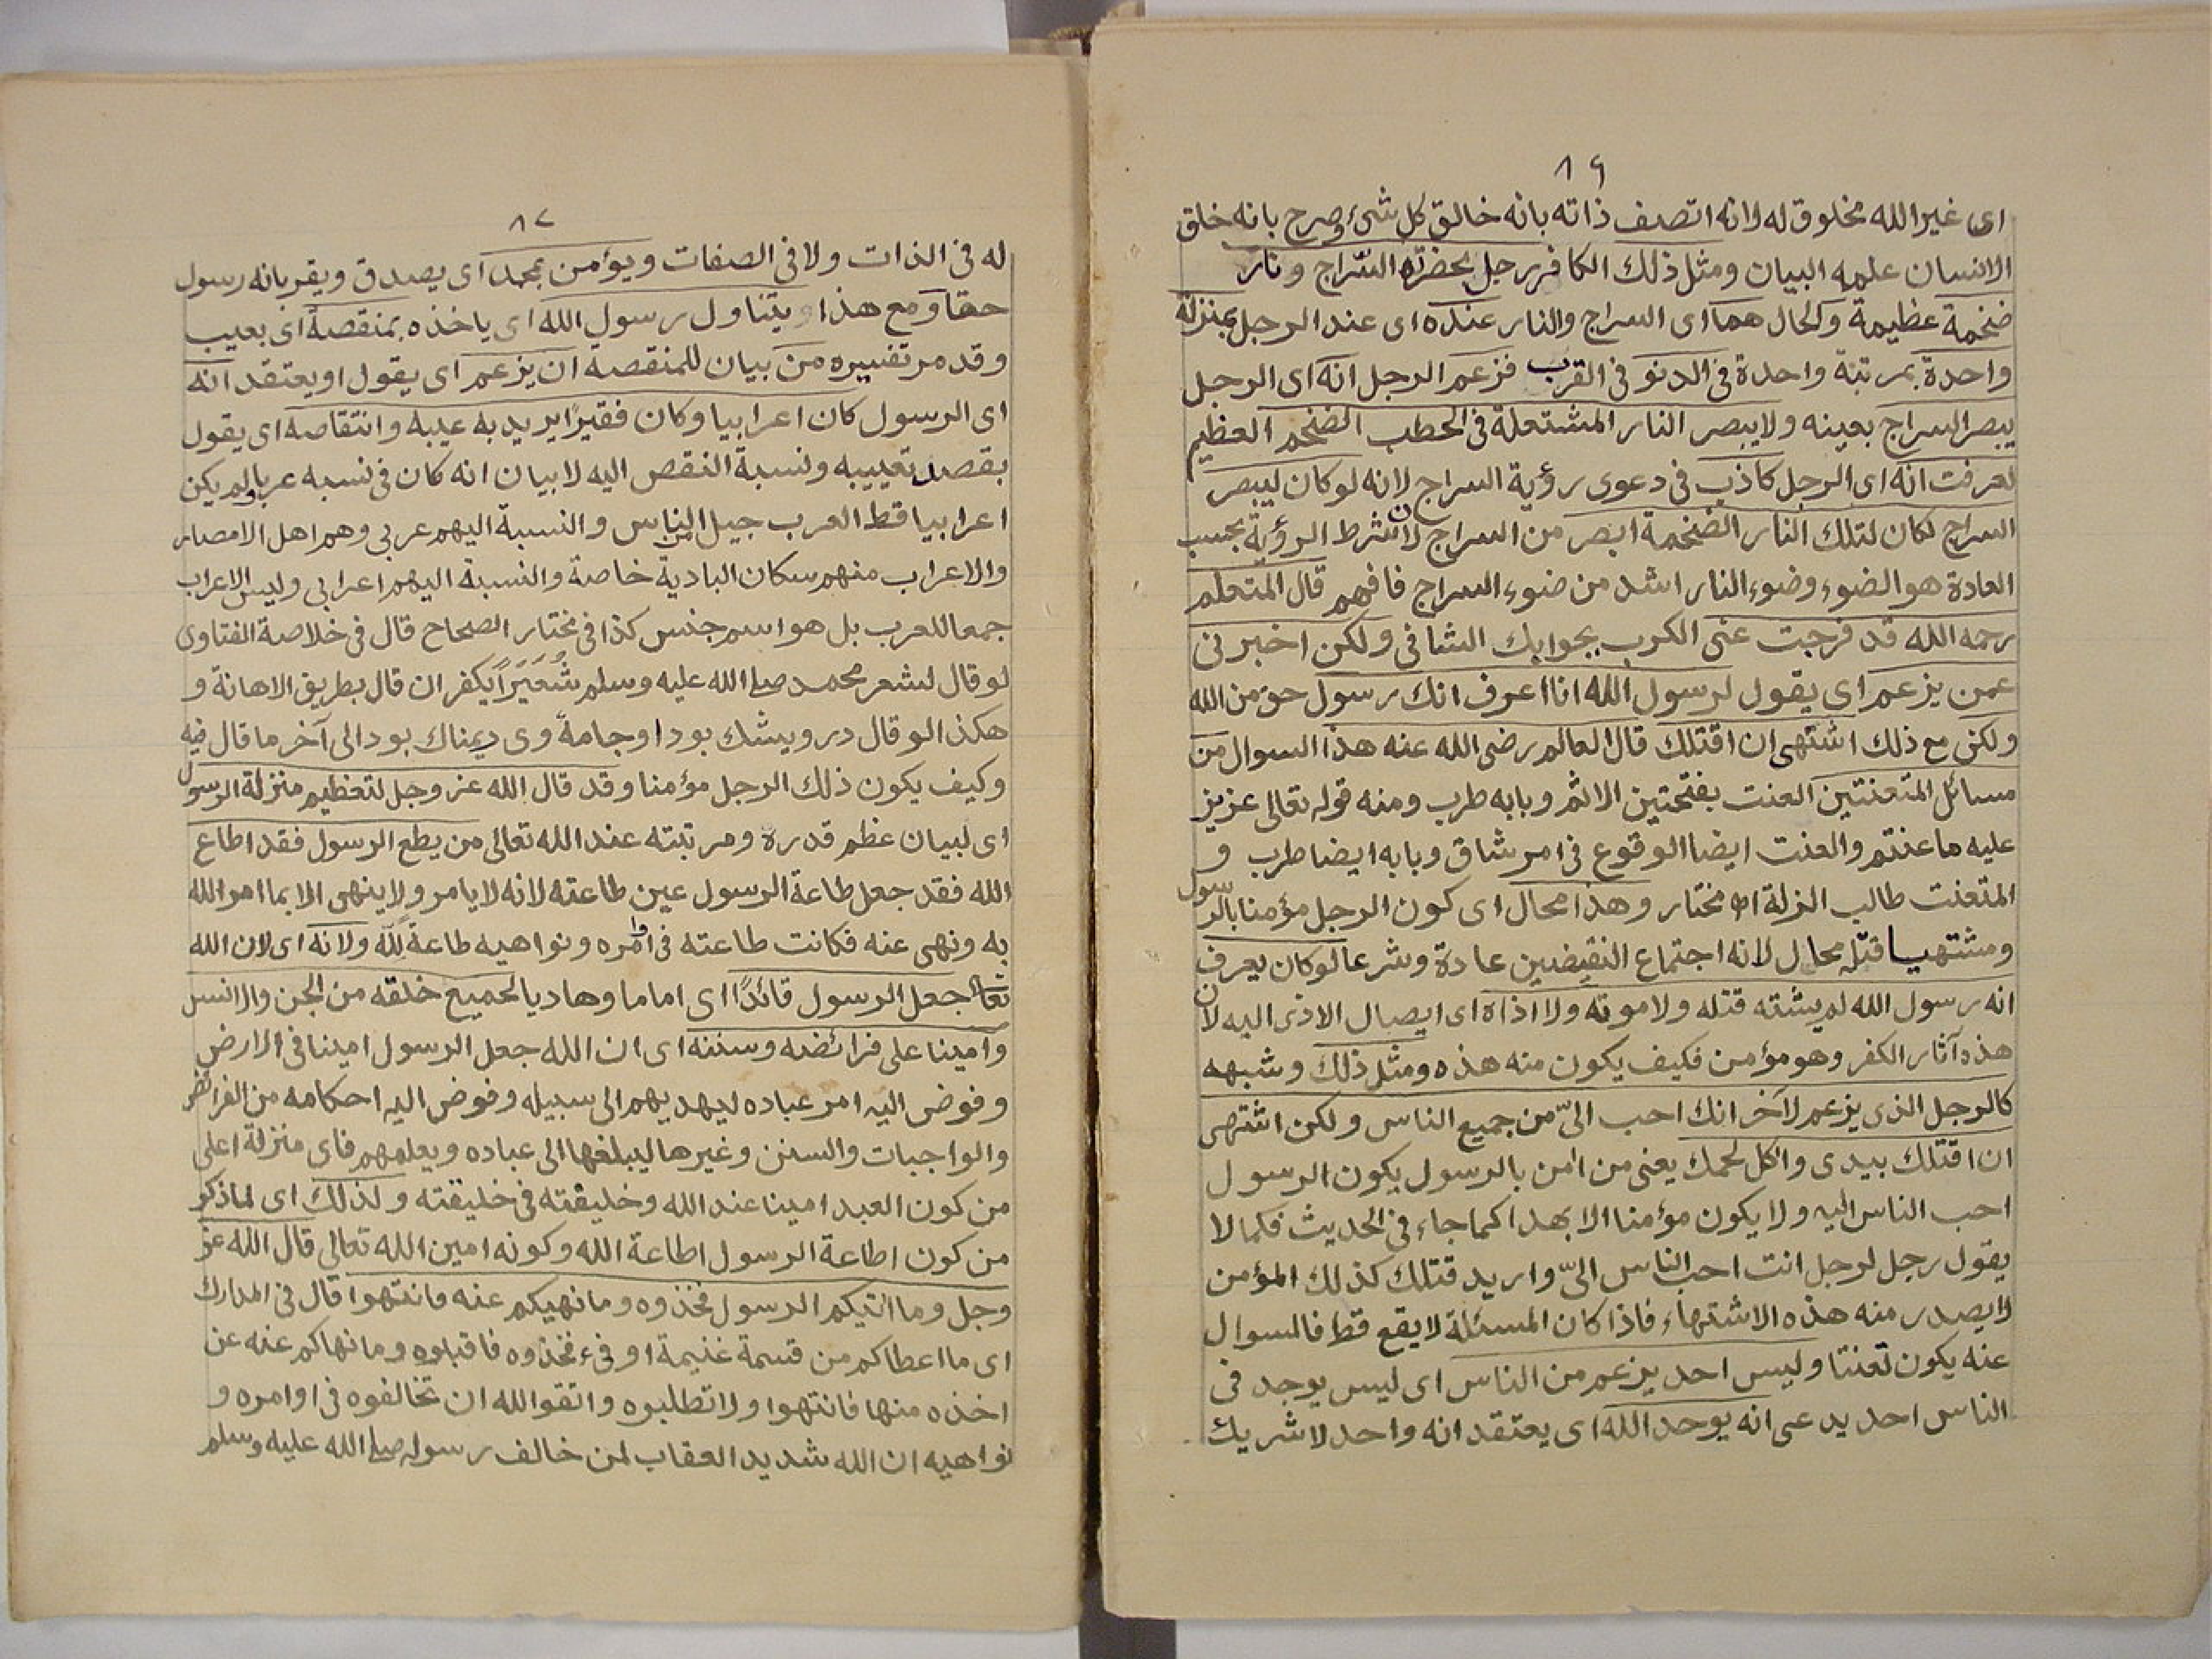 ٨٦
اى غير الله مخلوق له لانه اتصف ذاته بانه خالق كل شىء وصرح بانه خلق
الانسان علمه البيان ومثل ذلك الكافر رجل بحضرته السراج ونار
ضخمة عظيمة والحال هما اى السراج والنار عنده اى عند الرجل بمنزلة
واحدة بمرتبة واحدة فى الدنو فى القرب فزعم الرجل انه اى الرجل
يبصر السراج بعينه ولا يبصر النار المشتعلة فى الحطب الضخم العظيم
لعرفت انه اى الرجل كاذب فى دعوى رؤية السراج لانه لو كان ليبصر
السراج لكان لتلك النار الضخمة ابصر من السراج لان شرط الرؤية بحسب
العادة هو الضوء وضوء النار اشد من ضوء السراج فافهم قال المتعلم
رحمه الله قد فرجت عنى الكرب بجوابك الشافى ولكن اخبرنى
عمن يزعم اى يقول لرسول الله انا اعرف انك رسول حق من الله
ولكن مع ذلك اشتهى ان اقتلك قال العالم رضى الله عنه هذا السوال من
مسائل المتعنتين العنت بفتحتين الاثم وبابه طرب ومنه قوله تعالى عزيز
عليه ما عنتم والعنت ايضا الوقوع فى امر شاق وبابه ايضا طرب و
المتعنت طالب الزلة اه مختار وهذا محال اى كون الرجل مؤمنا بالرسول
ومشتهيا قتله محال لانه اجتماع النقيضين عادة وشرعا لو كان يعرف
انه رسول الله لم يشته قتله ولا موته ولا اذاه اى ايصال الاذى اليه لان
هذه آثار الكفر وهو مؤمن فكيف يكون منه هذه ومثل ذلك وشبهه
كالرجل الذى يزعم لآخر انك احب الىّ من جميع الناس ولكن اشتهى
ان اقتلك بيدى واكل لحمك يعنى من امن بالرسول يكون الرسول
احب الناس اليه ولا يكون مؤمنا الا بهذا كما جاء فى الحديث فكما لا
يقول رجل لرجل انت احب الناس الىّ واريد قتلك كذلك المؤمن
لا يصدر منه هذه الاشتهاء فاذا كان المسئلة لا يقع قط فالسوال
عنه يكون تعنتا وليس احد يزعم من الناس اى ليس يوجد فى
الناس احد يدعى انه يوحد الله اى يعتقد انه واحد لا شريك
٨٧
له فى الذات ولا فى الصفات ويؤمن بمحمد اى يصدق ويقر بانه رسول
حقا ومع هذا ويتناول رسول الله اى ياخذه بمنقصة اى بعيب
وقد مر تفسيره من بيان للمنقصة ان يزعم اى يقول او يعتقد انه
اى الرسول كان اعرابيا وكان فقيرًا يريد به عيبه وانتقاصه اى يقول
بقصد تعييبه ونسبة النقص اليه لا بيان انه كان فى نسبه عربيا ولم يكن
اعرابيا قط العرب جيل من الناس والنسبة اليهم عربى وهم اهل الامصار
والاعراب منهم سكان البادية خاصة والنسبة اليهم اعرابى وليس الاعراب
جمعا للعرب بل هو اسم جنس كذا فى مختار الصحاح قال فى خلاصة الفتاوى
لو قال لشعر محمد صلى الله عليه وسلم شُعَيرًا يكفر ان قال بطريق الاهانة و
هكذا لو قال درويشك بود او جامهٔ وى ريمناك بود الى آخر ما قال فيه
وكيف يكون ذلك الرجل مؤمنا وقد قال الله عز وجل لتعظيم منزلة الرسول
اى لبيان عظم قدره ومرتبته عند الله تعالى من يطع الرسول فقد اطاع
الله فقد جعل طاعة الرسول عين طاعته لانه لا يامر ولا ينهى الا بما امر الله
به ونهى عنه فكانت طاعته فى اوامره ونواهيه طاعةً للّه ولانه اى لان الله
تعالى جعل الرسول قائدًا اى اماما وهاديا لجميع خلقه من الجن والانس
وامينا على فرائضه وسننه اى ان الله جعل الرسول امينا فى الارض
وفوض اليه امر عباده ليهديهم الى سبيله وفوض اليه احكامه من الفرائض
والواجبات والسنن وغيرها ليبلغها الى عباده ويعلمهم فاى منزلة اعلى
من كون العبد امينا عند الله وخليفته فى خليقته ولذلك اى لما ذكر
من كون اطاعة الرسول اطاعة الله وكونه امين الله تعالى قال الله عز
وجل وما اتيكم الرسول فخذوه وما نهيكم عنه فانتهوا قال فى المدارك
اى ما اعطاكم من قسمة غنيمة او فىء فخذوه فاقبلوه وما نهاكم عنه عن
اخذه منها فانتهوا ولا تطلبوه واتقوا الله ان تخالفوه فى اوامره و
نواهيه ان الله شديد العقاب لمن خالف رسوله صلى الله عليه وسلم